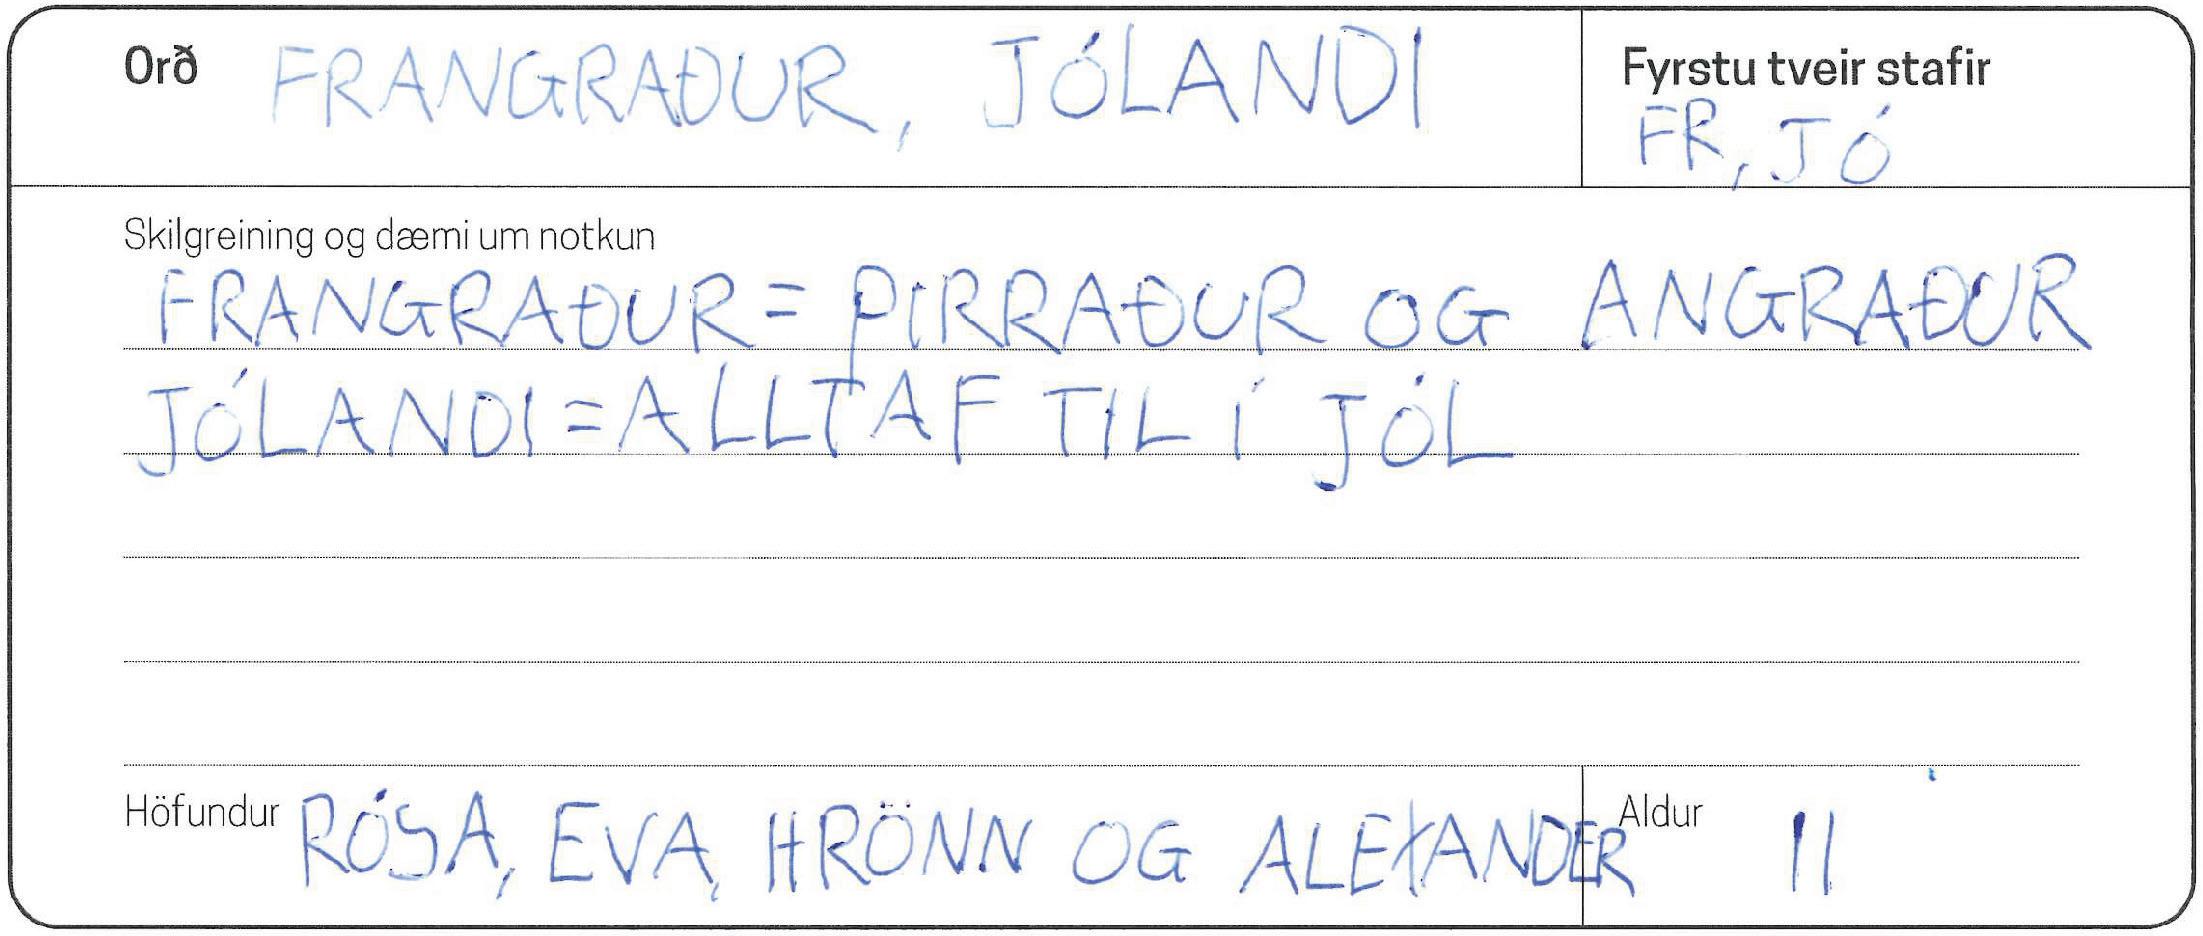 Orð FRANGRAÐUR, JÓLANDI
Fyrstu tveir stafir
FR, JÓ
Skilgreining og dæmi um notkun
FRANGRAÐUR = PIRRAÐUR OG ANGRAÐUR
JÓLANDI = ALLTAF TIL Í JÓL
Höfundur RÓSA, EVA, HRÖNN OG ALEXANDER
Aldur 11